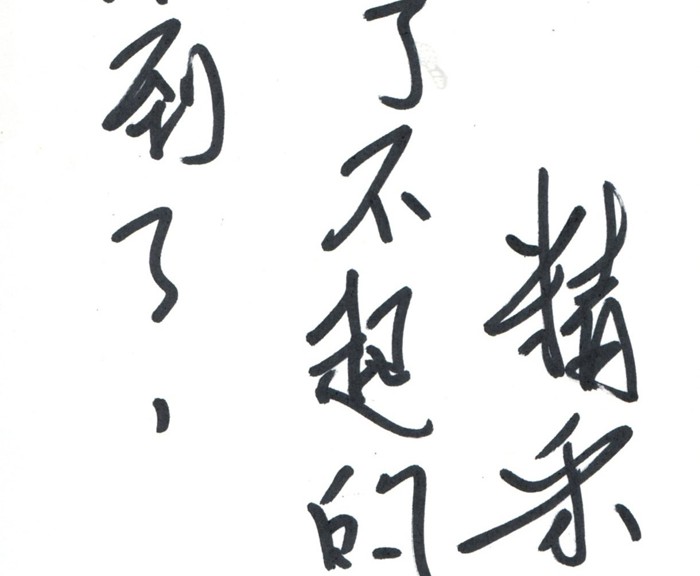 精采
了不起的
到了，